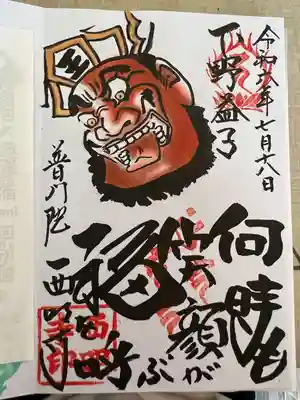 王
令和六年七月十八日
下野益子
何時も
笑顔が
福
呼ぶ
普門院
西明寺